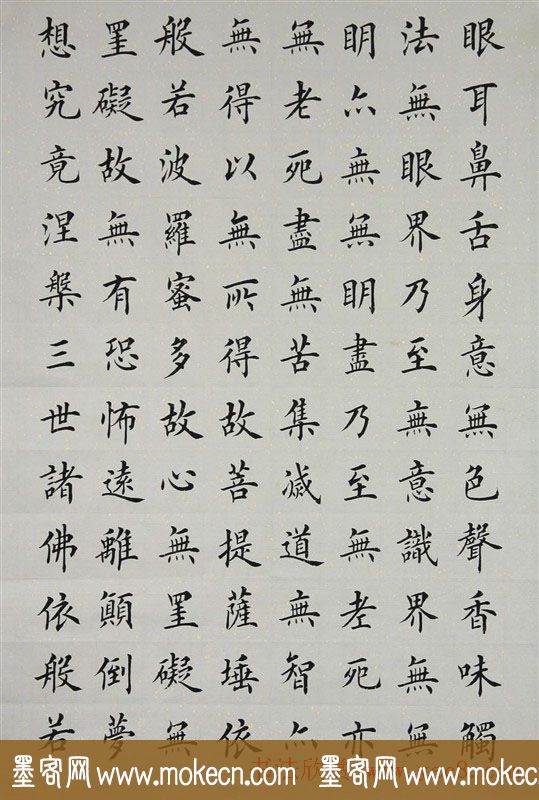 眼耳鼻舌身意無色聲香味觸
法無眼界乃至無意識界無無
明亦無無明盡乃至無老死亦
無老死盡無苦集滅道無智亦
無得以無所得故菩提薩埵依
般若波羅蜜多故心無罣礙無
罣礙故無有恐怖遠離顛倒夢
想究竟涅槃三世諸佛依般若
墨客网 www.mokecn.com 墨客网 www.mokecn.com